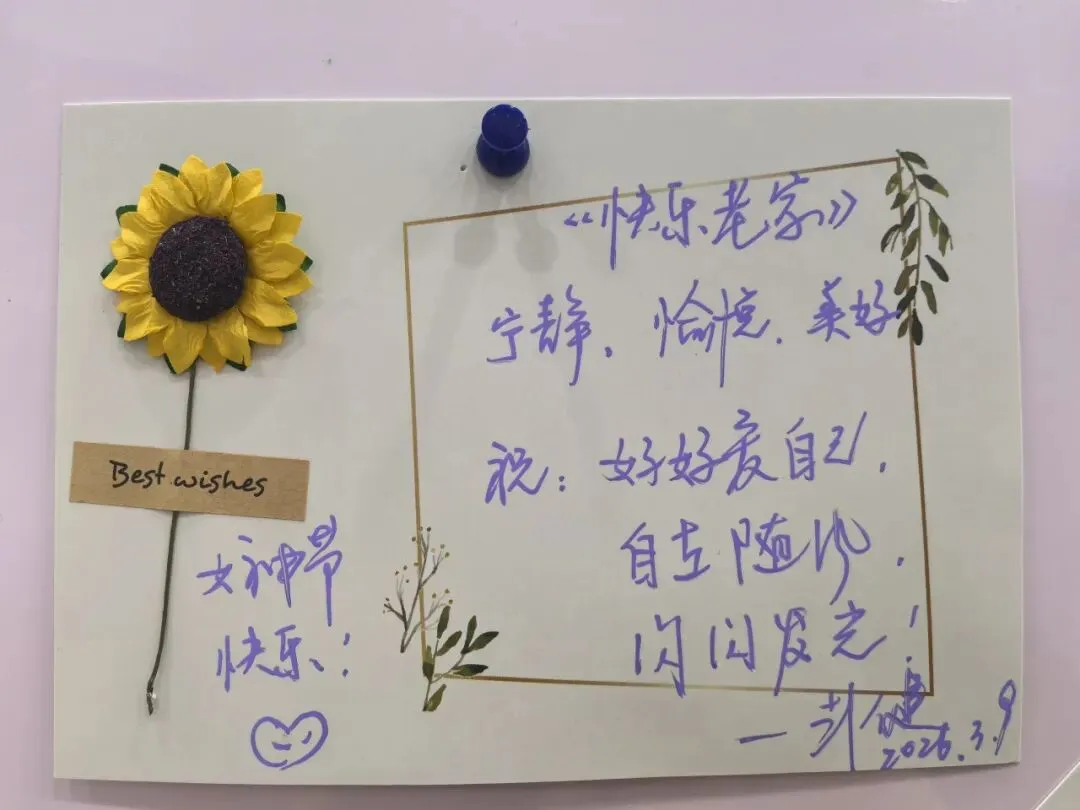 《快乐老家》
宁静、愉悦、美好
祝：好好爱自己，
自在随心，
闪闪发光！
2026.3.9
Best wishes
女神节
快乐！